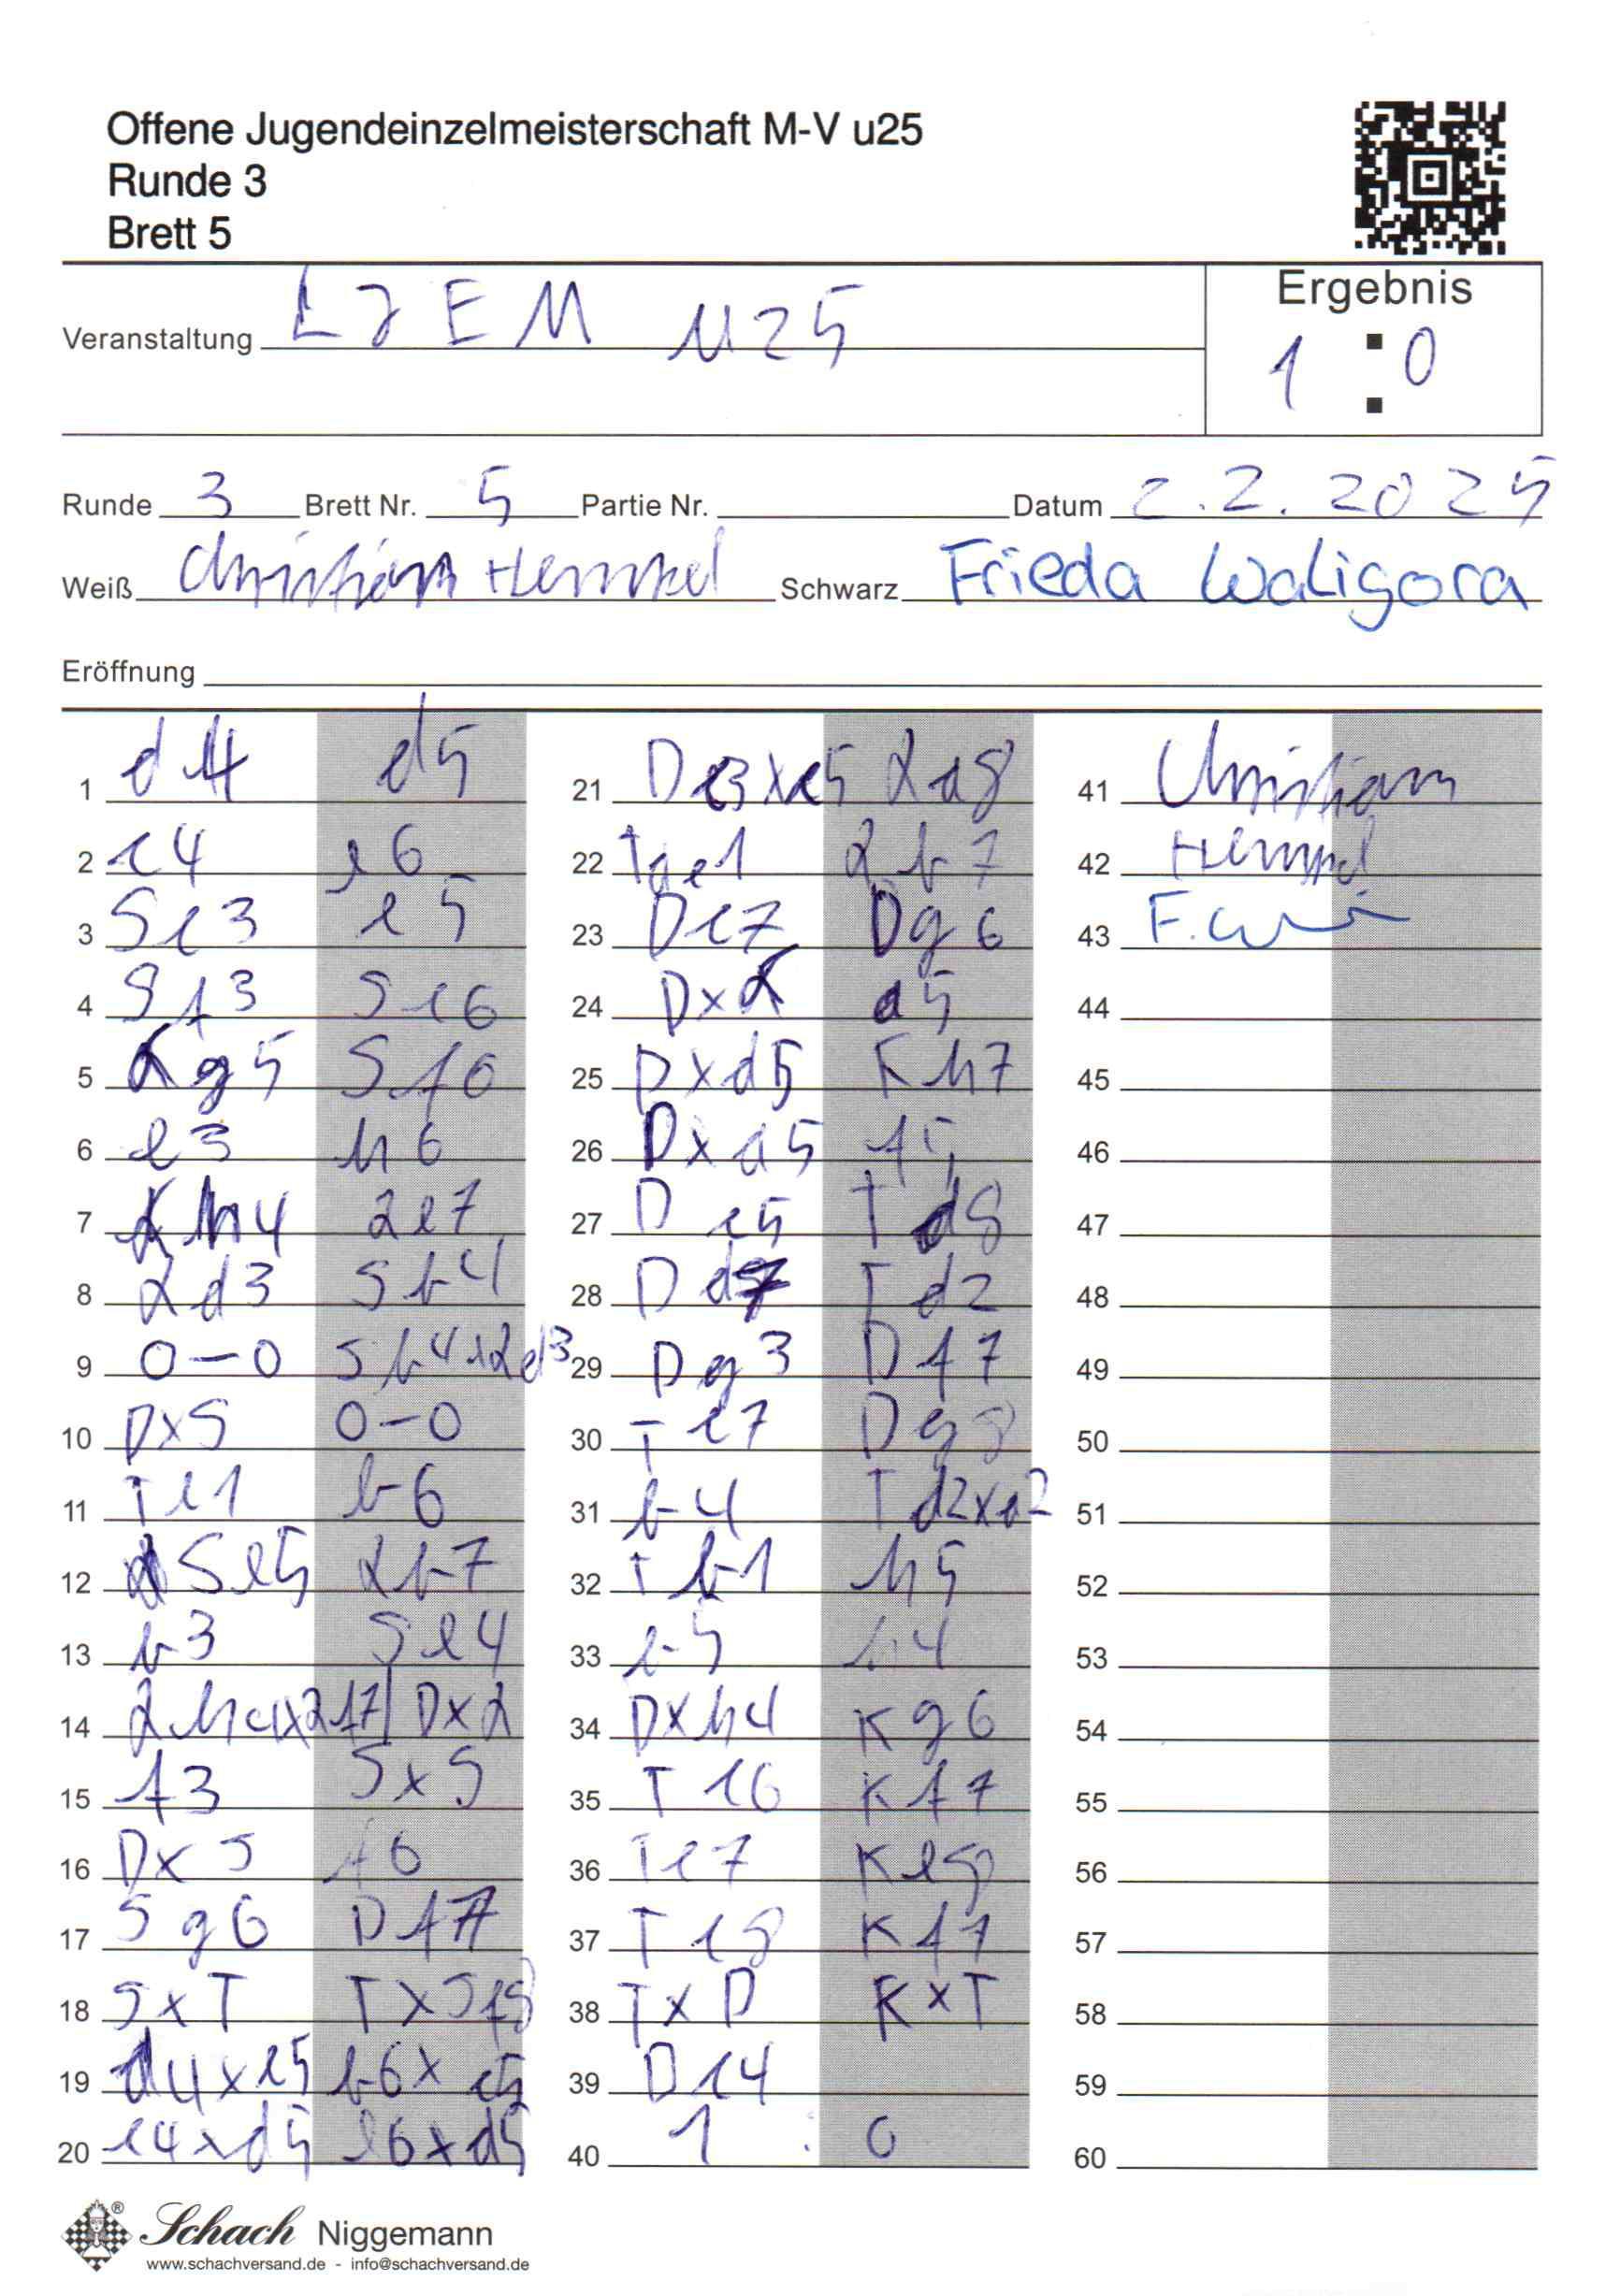 Offene Jugendeinzelmeisterschaft M-V u25
Runde 3
Brett 5
Veranstaltung LJEM U25
Ergebnis
1 : 0
Runde 3 Brett Nr. 5 Partie Nr. Datum 2.2.2025
Weiß Christian Hempel Schwarz Frieda Waligora
Eröffnung
1 d4 d5
2 c4 e6
3 Sc3 c5
4 Sf3 Sc6
5 Lg5 Sf6
6 e3 h6
7 Lh4 Le7
8 Ld3 Sb4
9 0-0 Sb4xLd3
10 DxS 0-0
11 Te1 b6
12 Se5 Lb7
13 b3 Se4
14 Lh4xLe7 DxL
15 f3 SxS
16 DxS f6
17 Sg6 Df7
18 SxT TxSf8
19 d4xc5 b6xc5
20 c4xd5 e6xd5
21 Dc3xc5 La8
22 Tae1 Lb7
23 Dc7 Dg6
24 DxL a5
25 Dxd5 Kh7
26 Dxa5 f5
27 Dc5 Td8
28 Dc7 Td2
29 Dg3 Df7
30 Tc7 Dg8
31 b4 Td2xa2
32 Tb1 h5
33 b5 h4
34 Dxh4 Kg6
35 Tc6 Kf7
36 Tc7 Ke8
37 Tc8 Kf7
38 TxD KxT
39 Dc4
40 1 : 0
41 Christian
42 Hempel
43 F.
44
45
46
47
48
49
50
51
52
53
54
55
56
57
58
59
60
Schach Niggemann
www.schachversand.de - info@schachversand.de